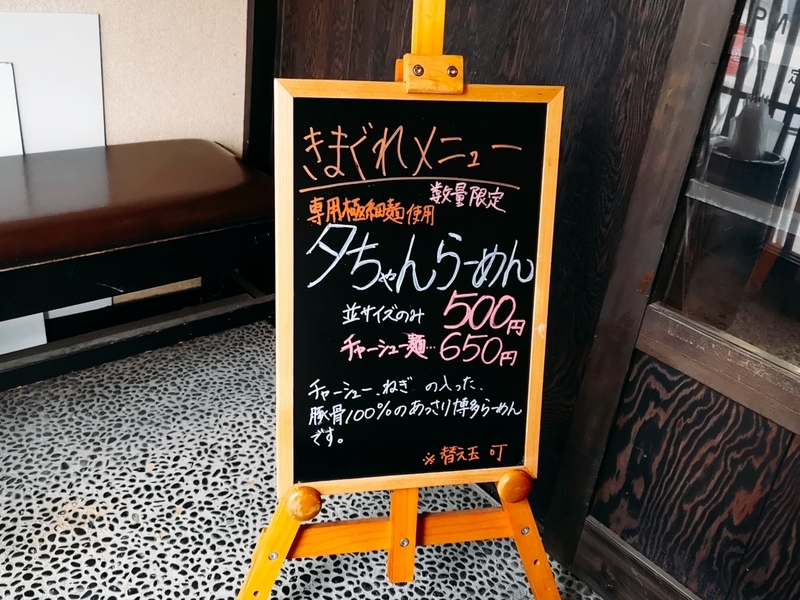 きまぐれメニュー
数量限定
専用極細麺使用
夕ちゃんらーめん
並サイズのみ 500円
チャーシュー麺… 650円
チャーシュー、ねぎ の入った、
豚骨100%のあっさり博多らーめん
です。
※替え玉 可
定